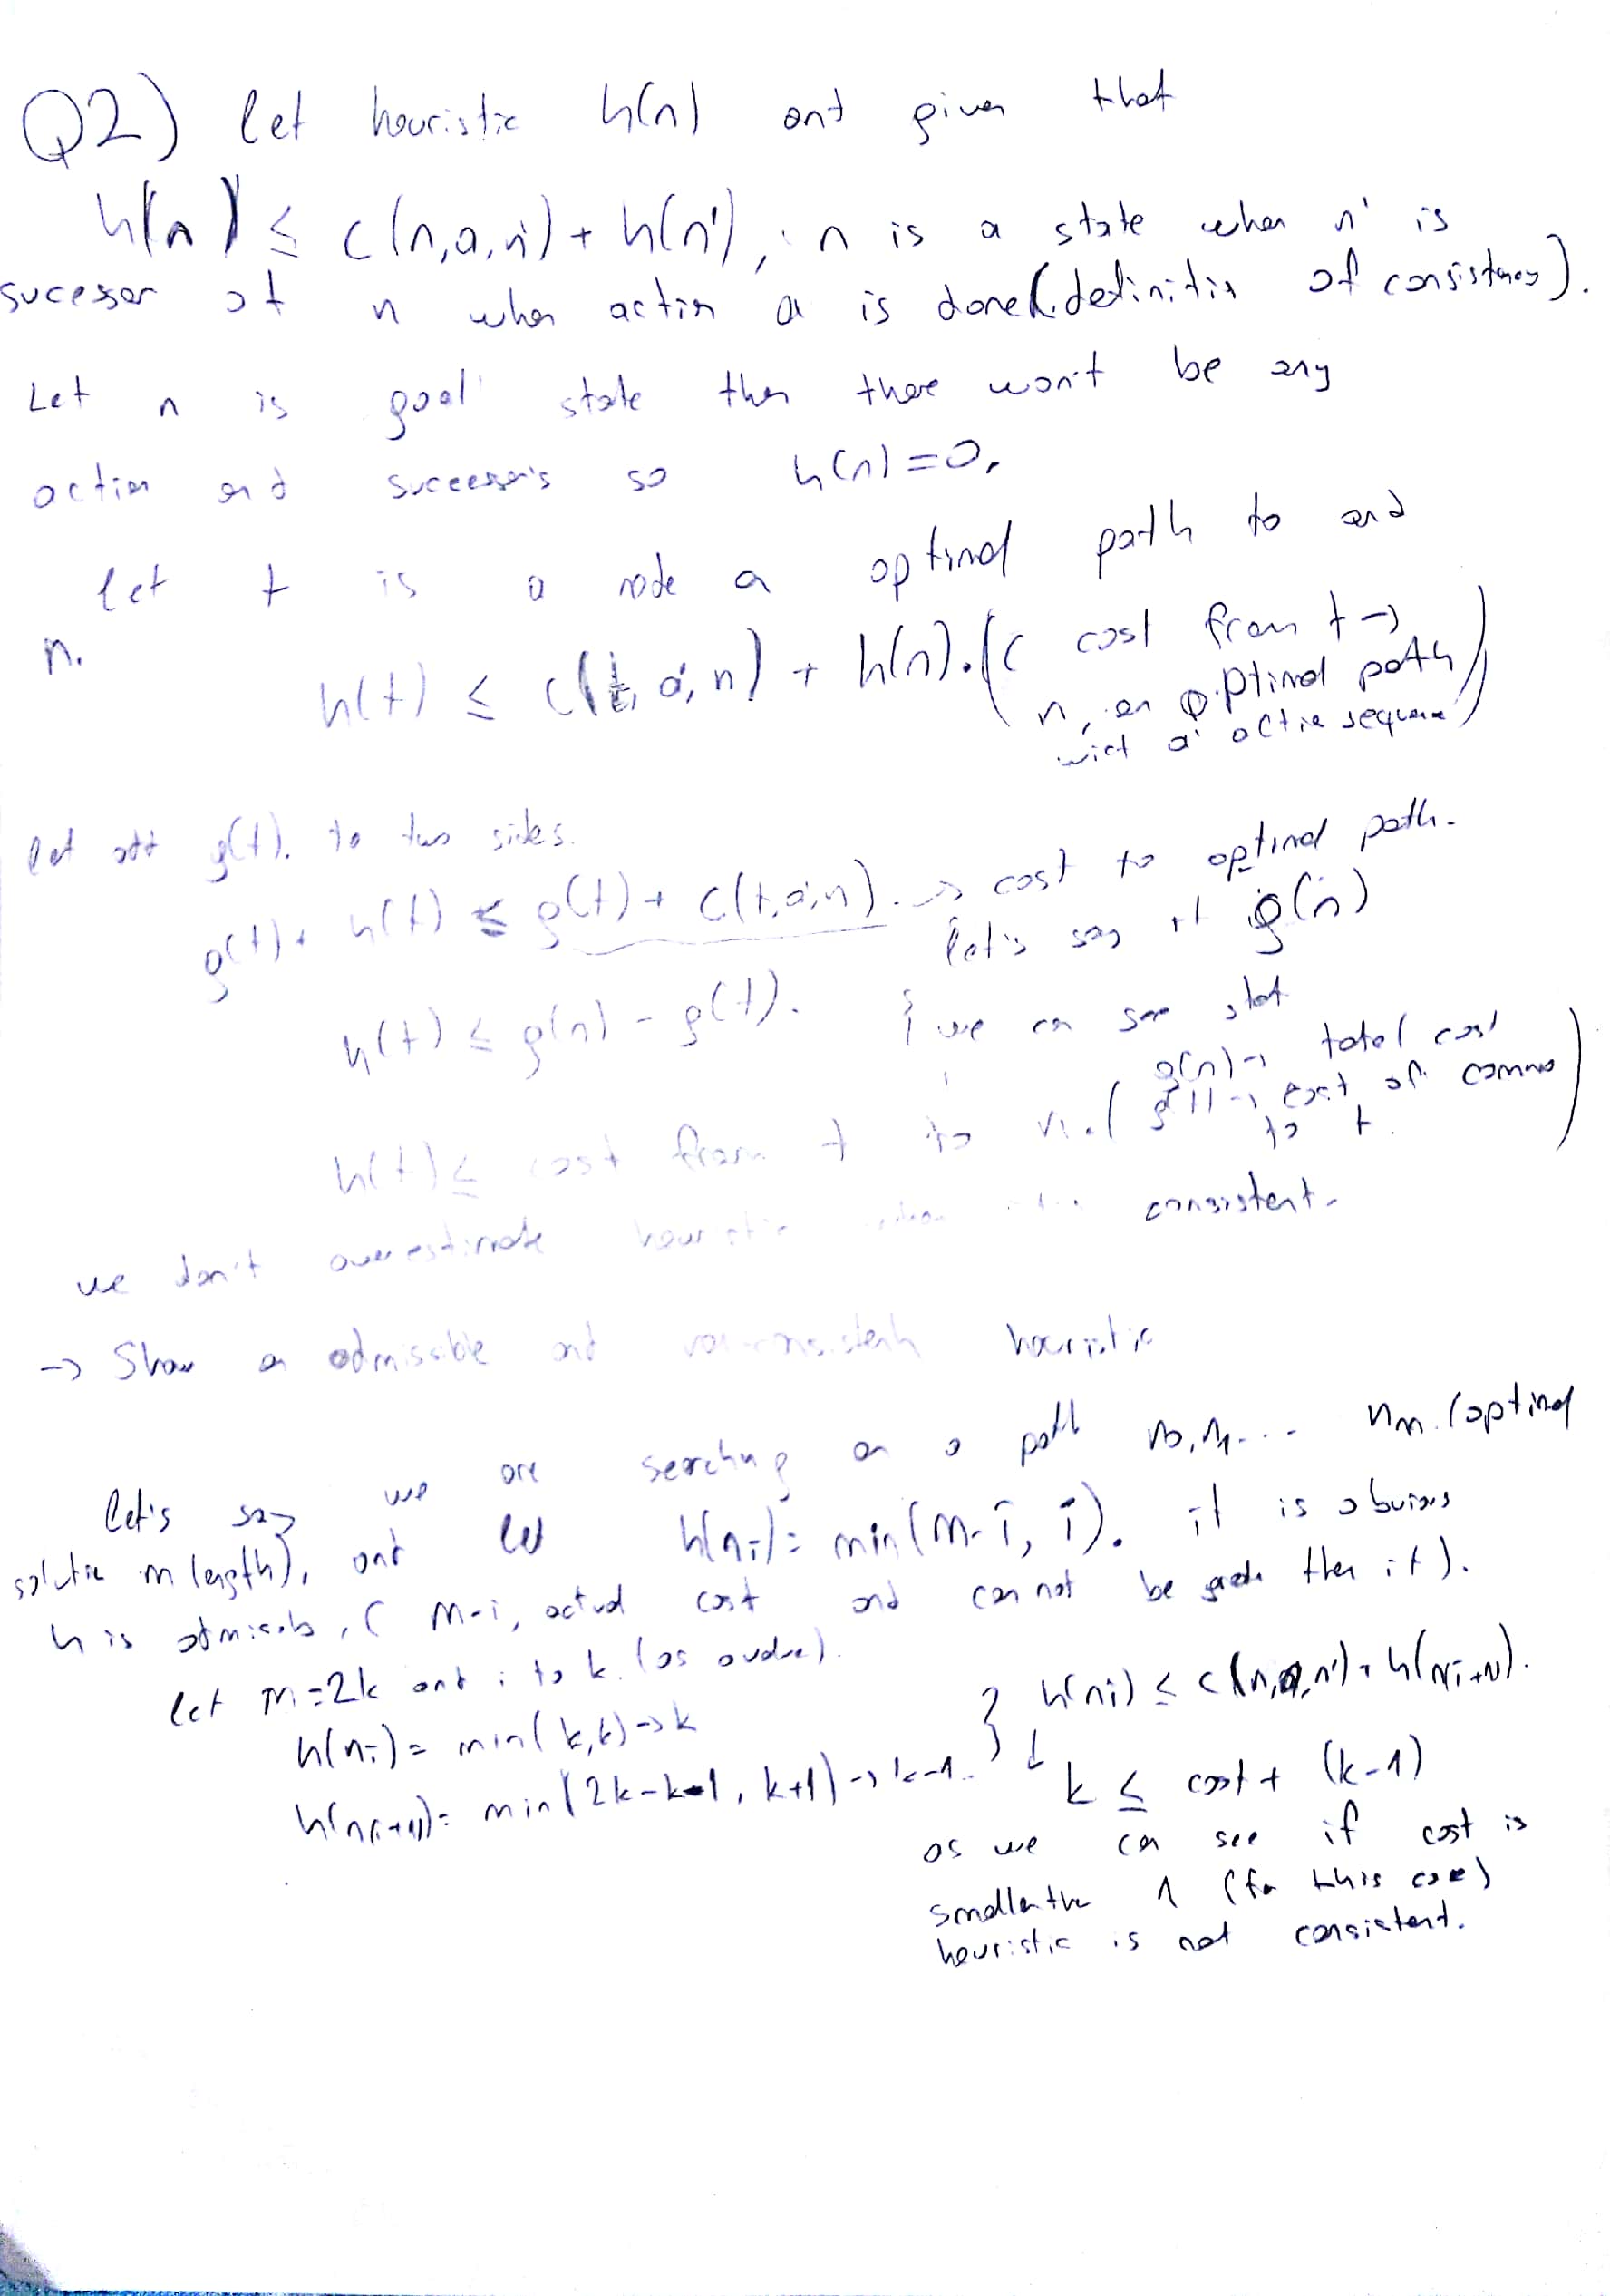 Q2) let heuristic h(n) and given that
h(n) ≤ c(n,a,n') + h(n'), n is a state when n' is
sucessor of n when action a is done (definition of consistency).
Let n is goal state then there won't be any
action and successors so h(n)=0.
let t is a node a optimal path to end
n.
h(t) ≤ c(t, a', n) + h(n). (c cost from t →
n, on optimal path
wict a' action sequence)
let add g(t). to two sides.
g(t) + h(t) ≤ g(t) + c(t,a',n). → cost to optimal path.
let's say it g(n)
h(t) ≤ g(n) - g(t). } we can see that
g(n) → total cost
h(t) ≤ cost from t to n. ( g(t) → cost of comms
to t. )
we don't overestimate heuristic when it is consistent.
→ Show an admissible and non-consistent heuristic
let's say we are searching on a path n0, n1 ... nm. (optimal
solution m length), and let h(ni) = min(m-i, i). it is obvious
h is admissible, ( m-i, actual cost and can not be then it).
let m=2k and i to k.
h(ni) = min(k,k) → k } h(ni) ≤ c(n,a,n') + h(ni+1).
h(n(i+1)) = min(2k-k-1, k+1) → k-1. ↓ k ≤ cost + (k-1)
as we can see if cost is
smaller the 1 (for this case)
heuristic is not consistent.